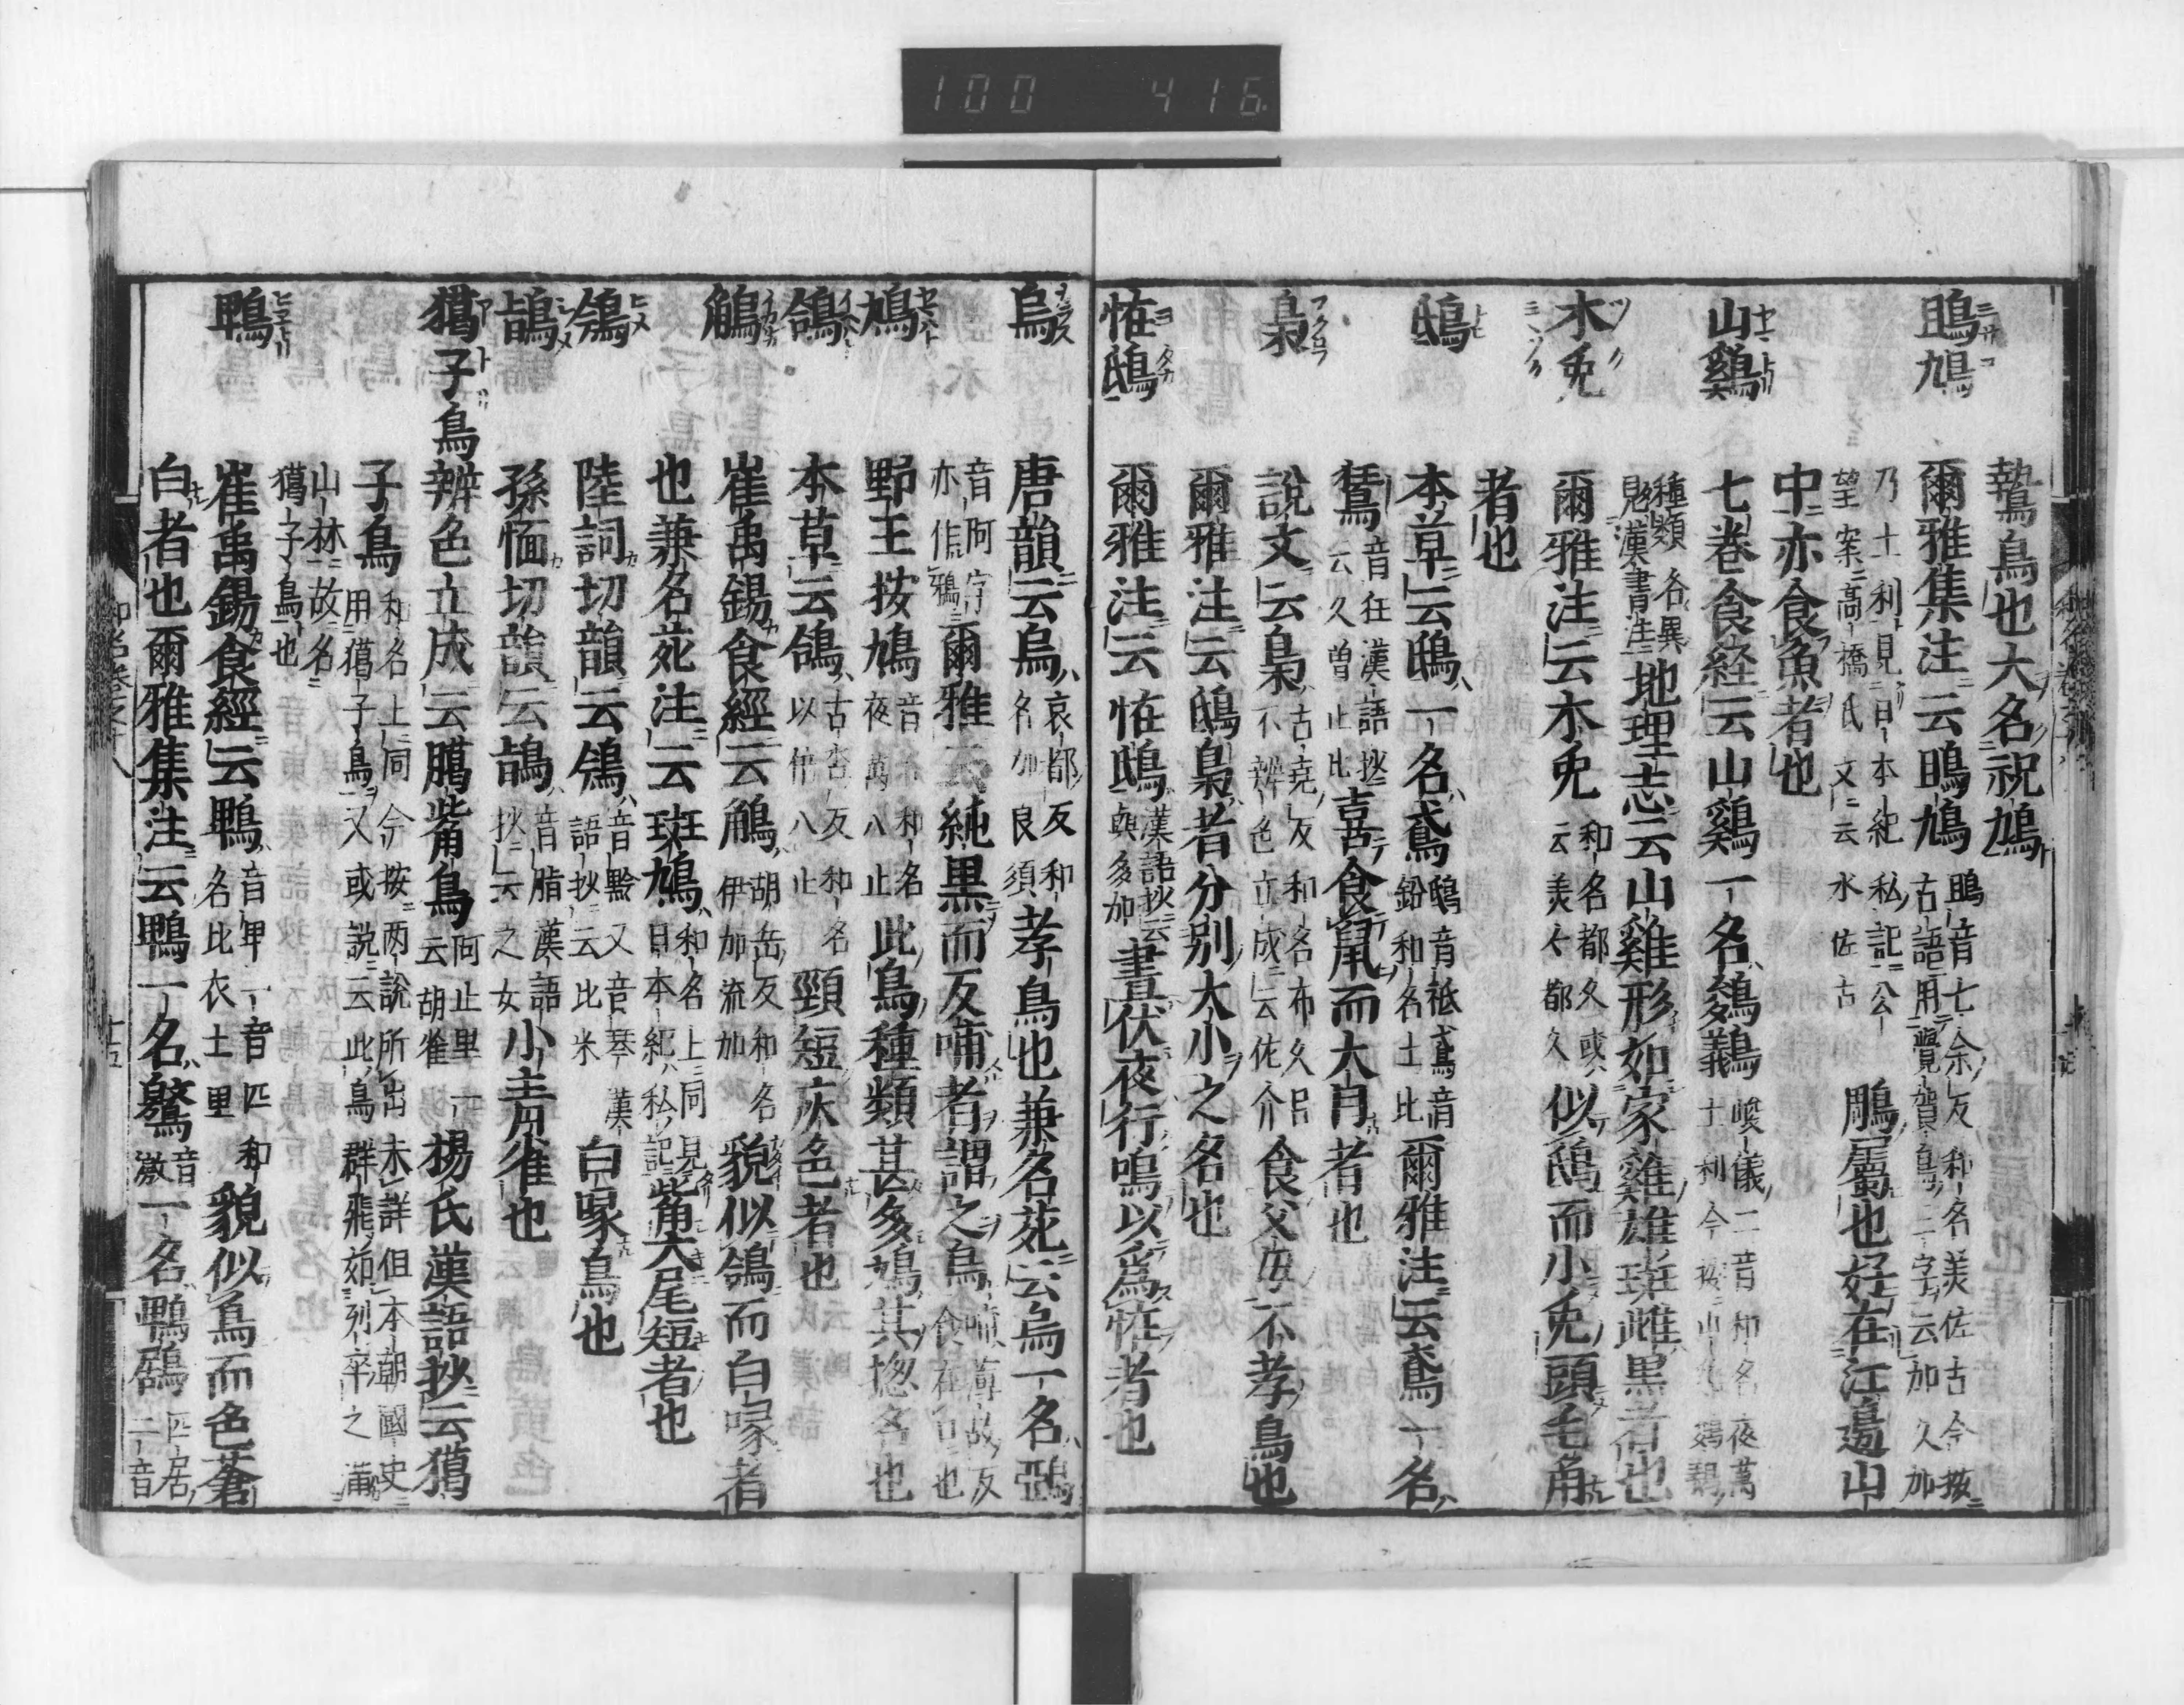 100 416
鷙鳥也大名祝鳩
鴡鳩 爾雅集注云鴡鳩 鴡音七余反和名美佐古今按古語用覺賀鳥三字云加久加
乃土利見日本紀私記公望案高橋氏文云水佐古 鵰屬也好在江邊山
中亦食魚者也
山鷄 七卷食経云山鷄一名鵕鸃 峻儀二音和名夜萬土利今按
種類各異見漢書注 地理志云山雞形如家雞雄斑雌黒者也
木兎 爾雅注云木兎 和名都久或云美々都久 似鴟而小兎頭毛角
者也
鴟 本草云鴟一名鳶 鴟音祗鳶音鉛和名土比 爾雅注云鳶一名
鵟 音狂漢語抄云久曾止比 喜食鼠而大肖者也
梟 説文云梟 古堯反和名布久呂不辨色立成云佐介 食父母不孝鳥也
爾雅注云鴟梟者分別大小之名也
恠鴟 爾雅注云恠鴟 漢語抄云與多加 晝伏夜行鳴以爲恠者也
烏 唐韻云烏 哀都反和名加良須 孝鳥也兼名苑云烏一名鵶
音阿字亦作鴉 爾雅云純黒而反哺者謂之烏
鳩 野王按鳩 音 和名夜萬八止 此鳥種類甚多鳩其惣名也
鴿 本草云鴿 古沓反和名以倍八止 頸短灰色者也
鵤 崔禹錫食經云鵤 胡岳反和名伊加流加 貌似鴿而白喙者
也兼名苑注云斑鳩 和名上同見日本紀私記 觜大尾短者也
鳹 陸詞切韻云鳹 音黔又音琴漢語抄云比米 白喙鳥也
鴲 孫愐切韻云鴲 音脂漢語抄云之女 小青雀也
獦子鳥 辨色立成云臈觜鳥 阿止里一云胡雀 楊氏漢語抄云獦
子鳥 和名上同今按両説所出未詳但本朝國史用獦子鳥又或説云此鳥群飛如列卒之滿
山林故名獦子鳥也
鴨 崔禹錫食經云鴨 音甲一音匹和名比衣土里 貌似鳥而色蒼
白者也爾雅集注云鴨一名鸄 音激 一名鴨鶋 匹居二音